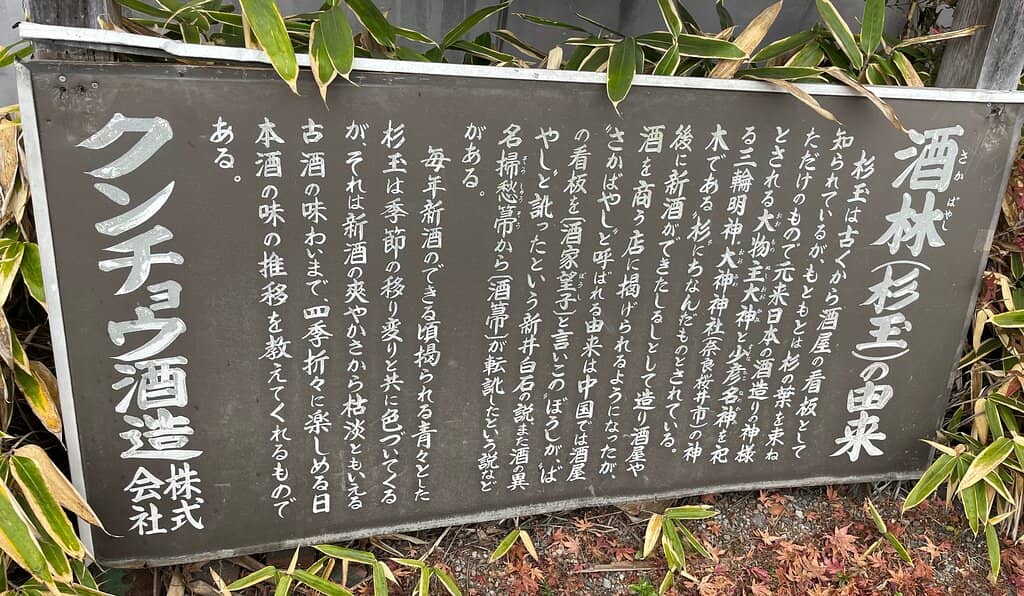 酒林(杉玉)の由来
さか ばやし
杉玉は古くから酒屋の看板として
知られているが、もともとは杉の葉を束ね
ただけのもので元来日本の酒造りの神様
とされる大物主大神と少彦名神を祀
る三輪明神、大神神社(奈良桜井市)の神
木である〝杉〟にちなんだものとされている。
後に新酒ができたしるしとして造り酒屋や
酒を商う店に掲げられるようになったが、
〝さかばやし〟と呼ばれる由来は中国では酒屋
の看板を(酒家望子)と言いこの〝ぼうし〟が、〝ば
やし〟と訛ったという新井白石の説また酒の異
名掃愁箒から(酒箒)が転訛したという説など
がある。
毎年新酒のできる頃掲られる青々とした
杉玉は季節の移り変りと共に色づいてくる
が、それは新酒の爽やかさから枯淡ともいえる
古酒の味わいまで、四季折々に楽しめる日
本酒の味の推移を教えてくれるもので
ある。
クンチョウ酒造株式会社